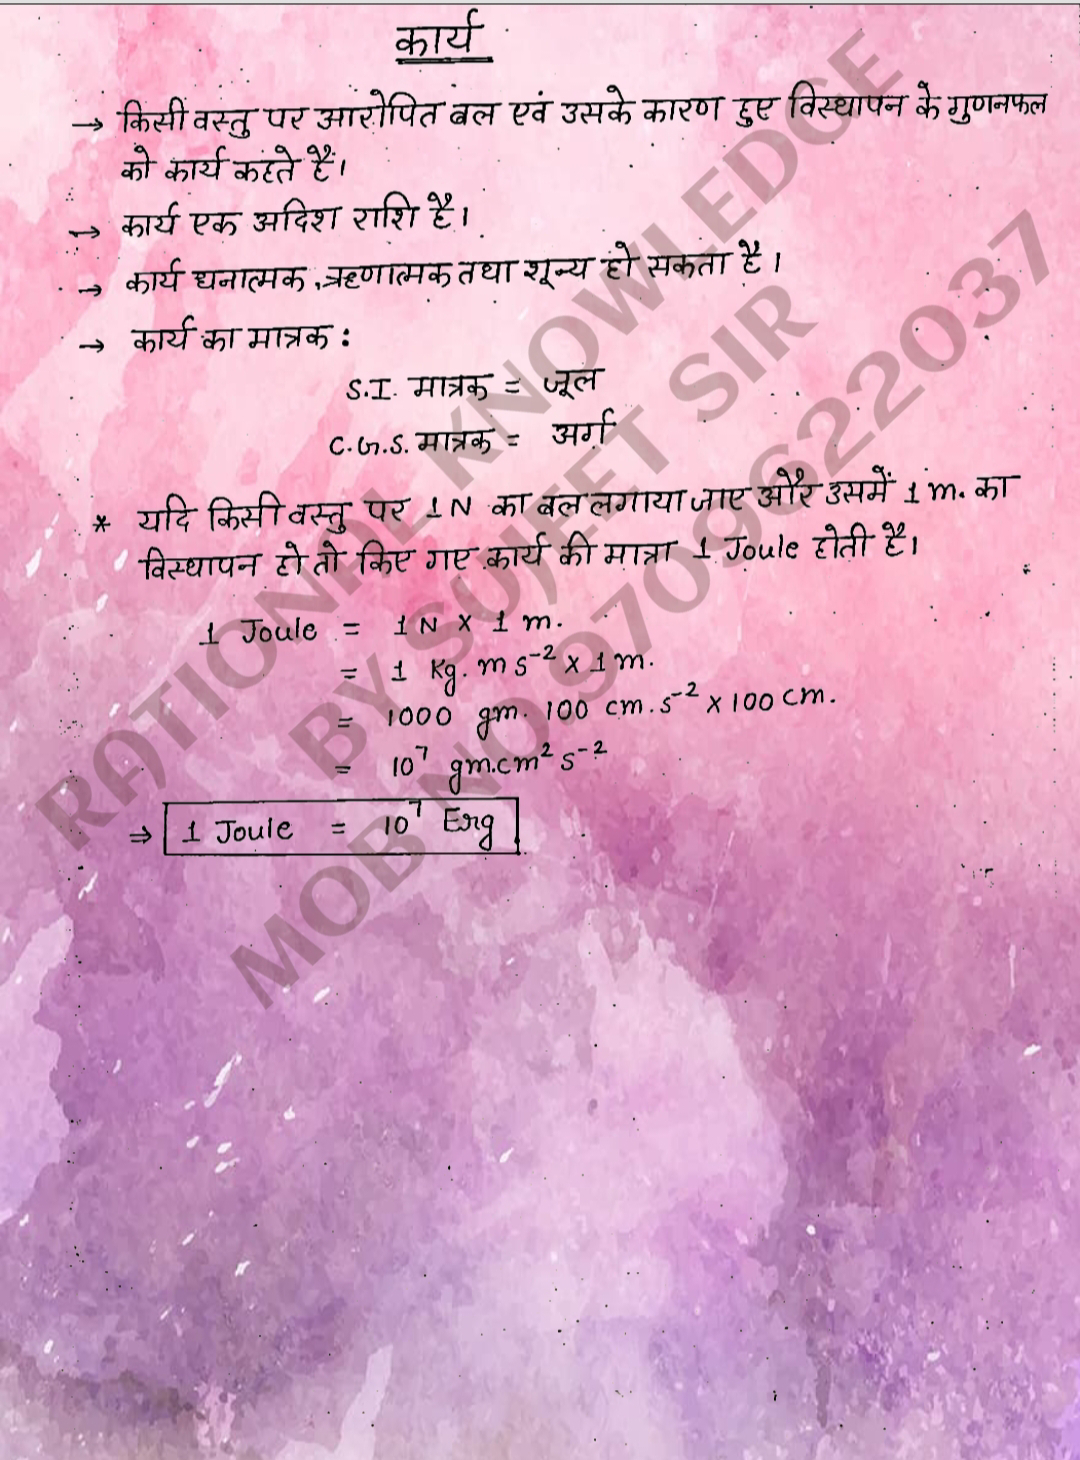 कार्य
→ किसी वस्तु पर आरोपित बल एवं उसके कारण हुए विस्थापन के गुणनफल
को कार्य कहते हैं।
→ कार्य एक अदिश राशि है।
→ कार्य धनात्मक, ऋणात्मक तथा शून्य हो सकता है।
→ कार्य का मात्रक :
S.I. मात्रक = जूल
C.G.S. मात्रक = अर्ग
* यदि किसी वस्तु पर 1N का बल लगाया जाए और उसमें 1 m. का
विस्थापन हो तो किए गए कार्य की मात्रा 1 Joule होती है।
1 Joule = 1N x 1 m.
= 1 Kg. m s⁻² x 1 m.
= 1000 gm. 100 cm. s⁻² x 100 cm.
= 10⁷ gm.cm² s⁻²
⇒ 1 Joule = 10⁷ Erg
RATIONAL KNOWLEDGE
BY SUJEET SIR
MOB NO.9709622037